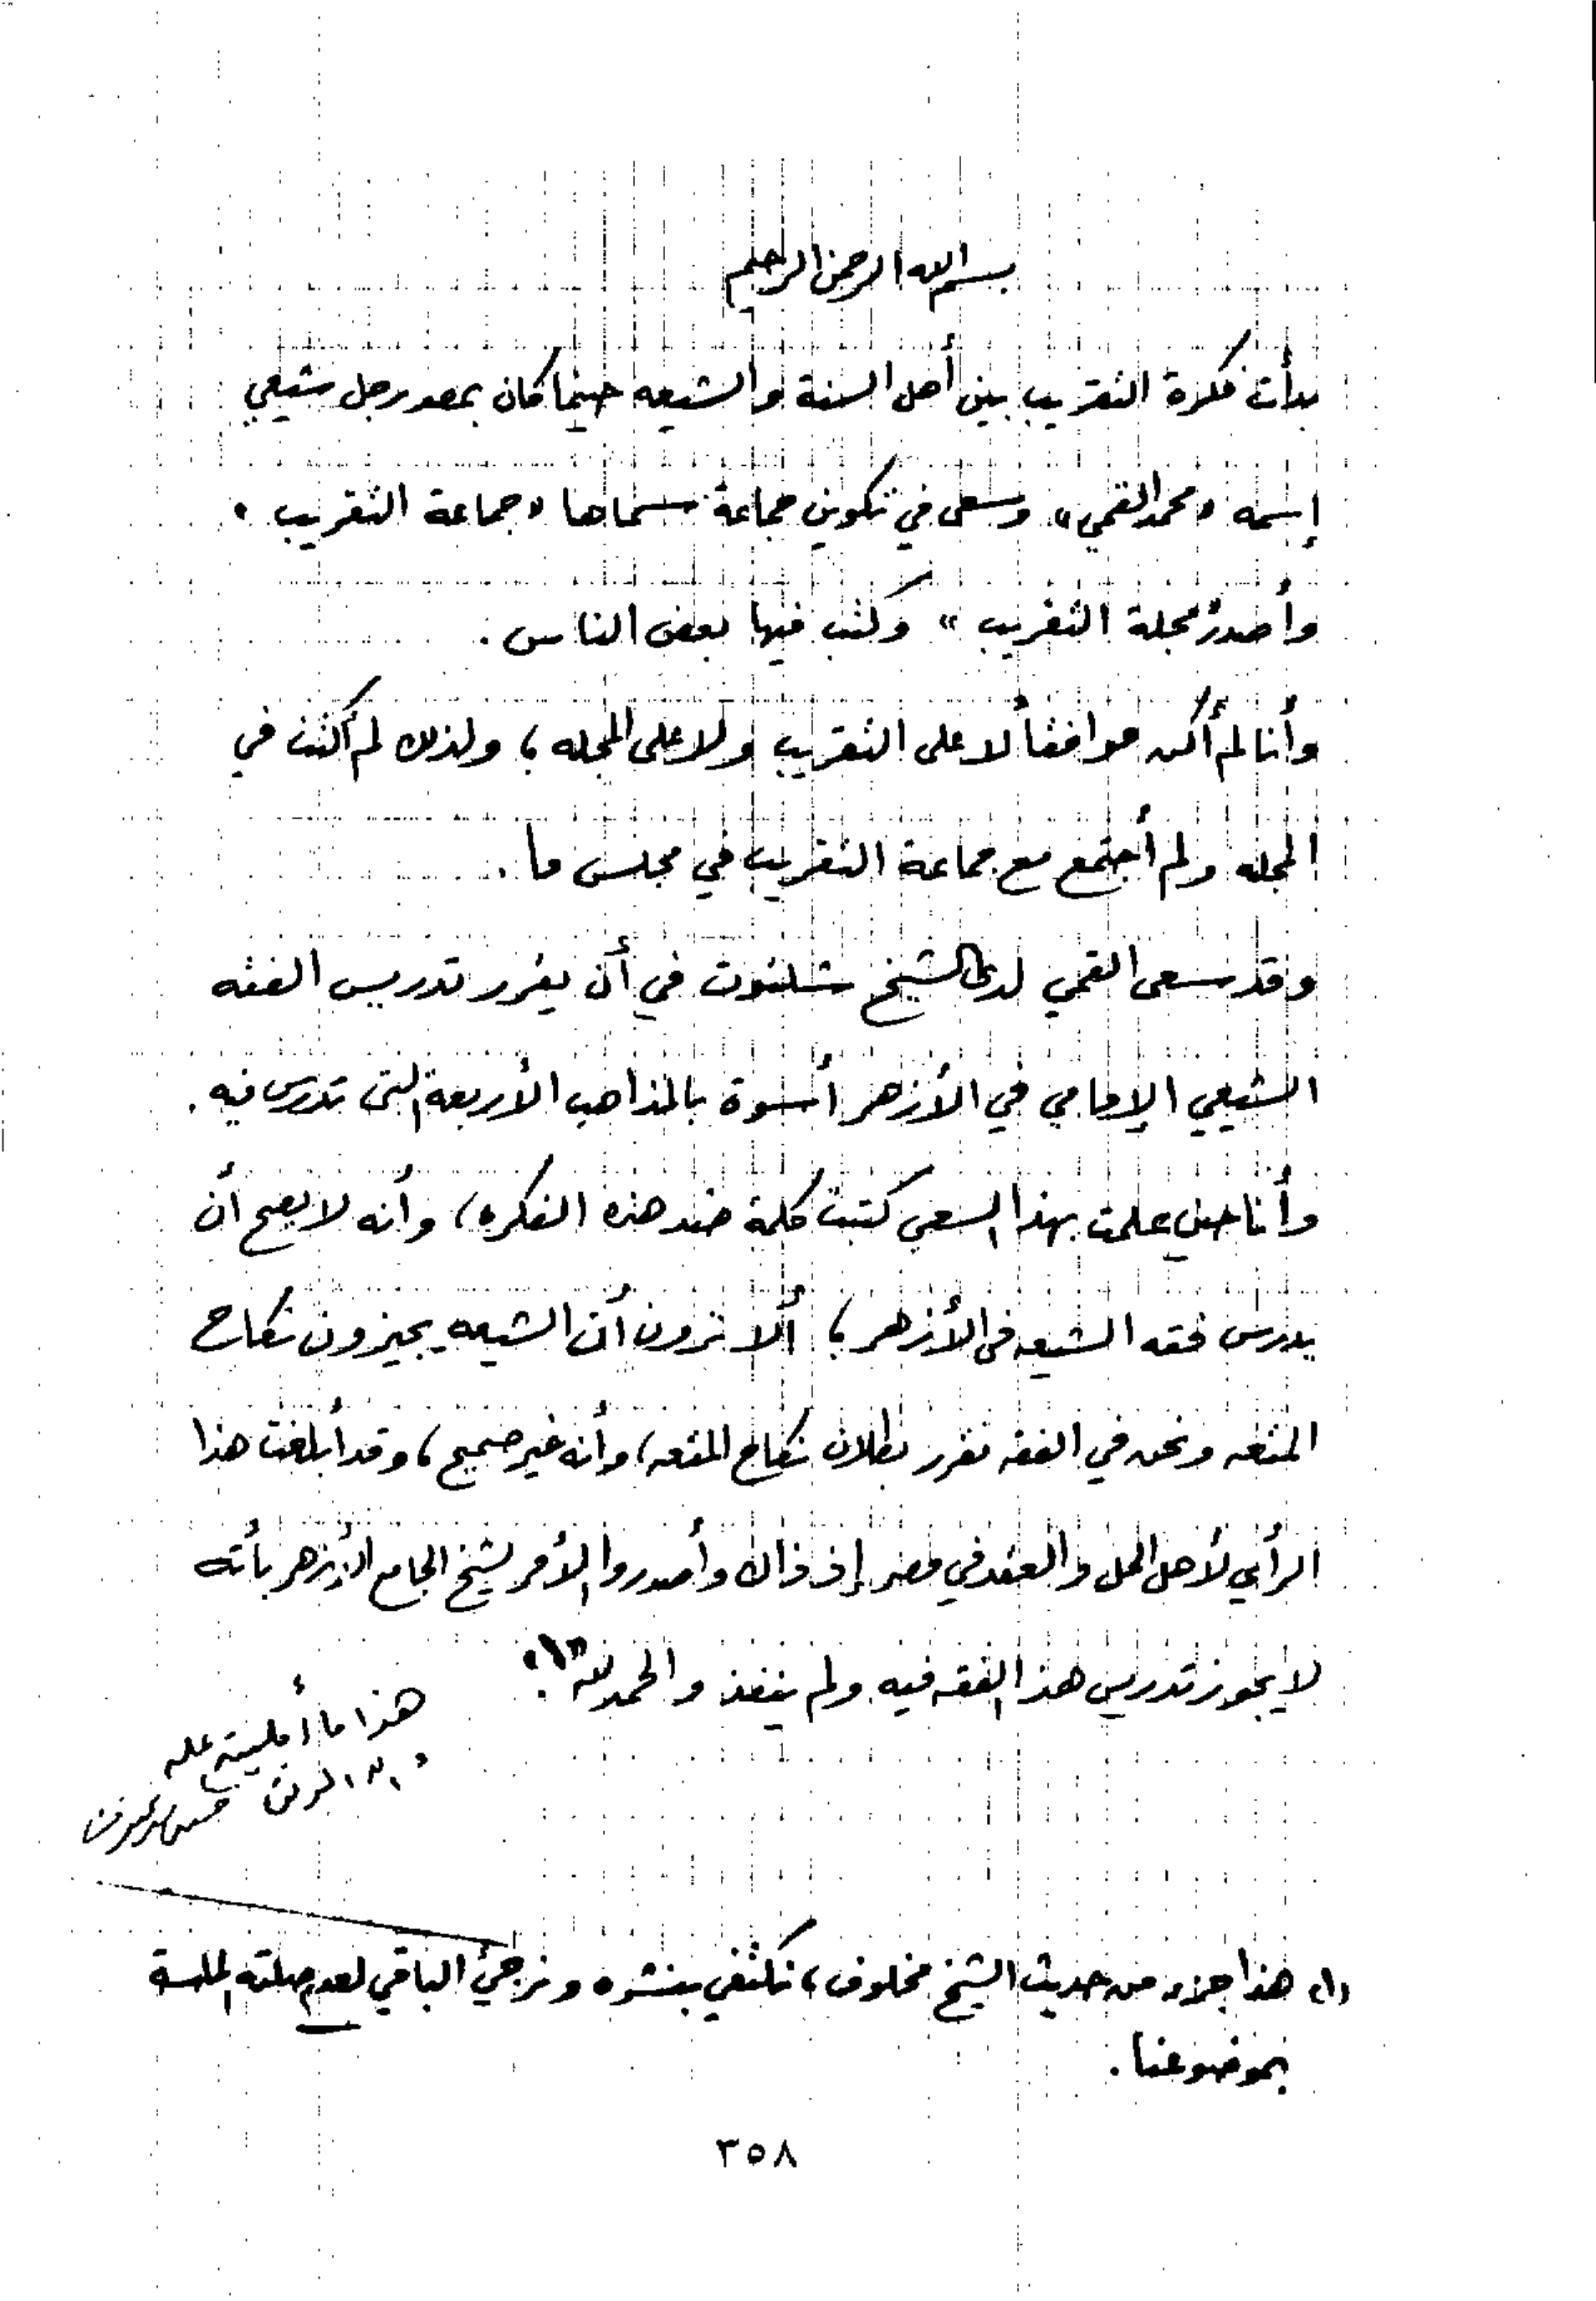 بسم الله الرحمن الرحيم
بدأت فكرة التقريب بين أهل السنة والشيعه حينما كان بمصر رجل شيعي
إسمه «محمد القمي» وسعى في تكوين جماعة سماها «جماعة التقريب»
وأصدر مجلة التقريب» وكتب فيها بعض الناس .
وأنا لم أكن موافقاً لا على التقريب ولا على المجله ، ولذلك لم أكتب في
المجله ولم أجتمع مع جماعة التقريب في مجلس ما .
وقد سعى القمي لدى الشيخ شلتوت في أن يقرر تدريس الفقه
الشيعي الإمامي في الأزهر أسوة بالمذاهب الأربعة التى تدرس فيه .
وأنا حين علمت بهذا السعي كتبت كلمة ضد هذه الفكره ، وأنه لا يصح أن
يدرس فقه الشيعه فى الأزهر ، ألا ترون أن الشيعه يجيزون نكاح
المتعه ونحن في الفقه نقرر بطلان نكاح المتعه ، وأنه غير صحيح ، وقد أبلغت هذا
الرأي لأهل الحل والعقد في مصر إذ ذاك وأصدروا الأمر لشيخ الجامع الأزهر بأنه
لا يجوز تدريس هذا الفقه فيه ولم ينفذ والحمد لله «١» .
هذا ما أمليته عليه
والله الموفق
(١) هذا جزء من حديث الشيخ مخلوف ، نكتفي بنشره ونرجئ الباقي لعدم صلته الماسة
بموضوعنا .
٣٥٨